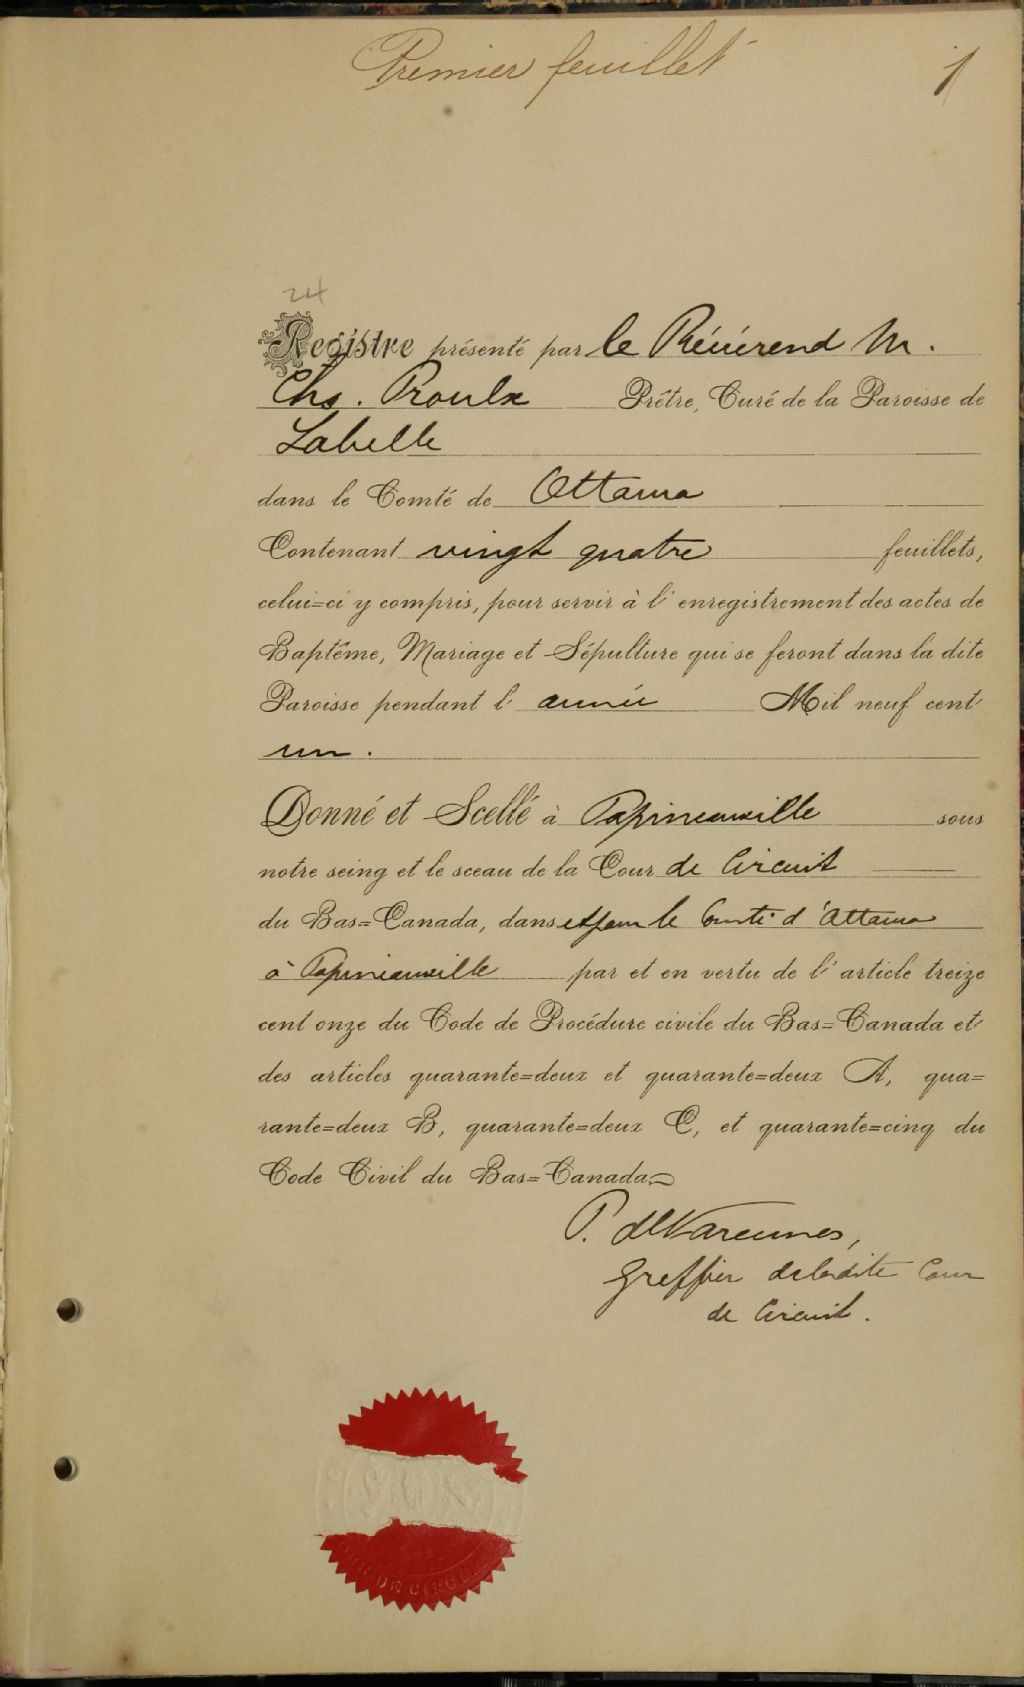 Premier feuillet
1
24
Registre présenté par le Révérend M.
Chs. Proulx Prêtre, Curé de la Paroisse de
Labelle
dans le Comté de Ottawa
Contenant vingt quatre feuillets,
celui=ci y compris, pour servir à l'enregistrement des actes de
Baptême, Mariage et Sépulture qui se feront dans la dite
Paroisse pendant l'année Mil neuf cent
un.
Donné et Scellé à Papineauville sous
notre seing et le sceau de la Cour de Circuit
du Bas=Canada, dans et pour le Comté d'Ottawa
à Papineauville par et en vertu de l'article treize
cent onze du Code de Procédure civile du Bas=Canada et
des articles quarante=deux et quarante=deux A, qua=
rante=deux B, quarante=deux C, et quarante=cinq du
Code Civil du Bas=Canada
P. deVarennes,
Greffier de ladite Cour
de Circuit.